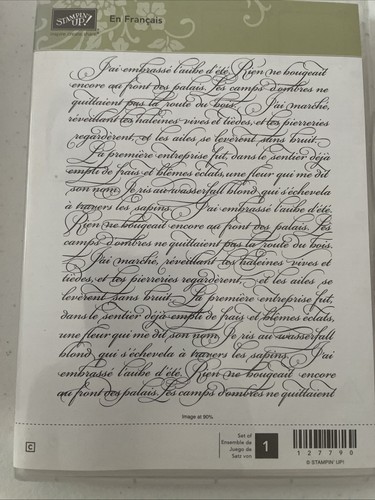 STAMPIN' UP!
En Français
J'ai embrassé l'aube d'été. Rien ne bougeait
encore au front des palais. Les camps d'ombres ne
quittaient pas la route du bois. J'ai marché,
réveillant les haleines vives et tièdes, et les pierreries
regardèrent, et les ailes se levèrent sans bruit.
La première entreprise fut, dans le sentier déjà
empli de frais et blêmes éclats, une fleur qui me dit
son nom. Je ris au wasserfall blond qui s'échevela
à travers les sapins. J'ai embrassé l'aube d'été.
Rien ne bougeait encore au front des palais. Les
camps d'ombres ne quittaient pas la route du bois.
J'ai marché, réveillant les haleines vives et
tièdes, et les pierreries regardèrent, et les ailes se
levèrent sans bruit. La première entreprise fut,
dans le sentier déjà empli de frais et blêmes éclats,
une fleur qui me dit son nom. Je ris au wasserfall
blond qui s'échevela à travers les sapins. J'ai
embrassé l'aube d'été. Rien ne bougeait encore
au front des palais. Les camps d'ombres ne quittaient
Image at 90%
C
Set of
Ensemble de
Juego de
Satz von
1
127790
© STAMPIN' UP!